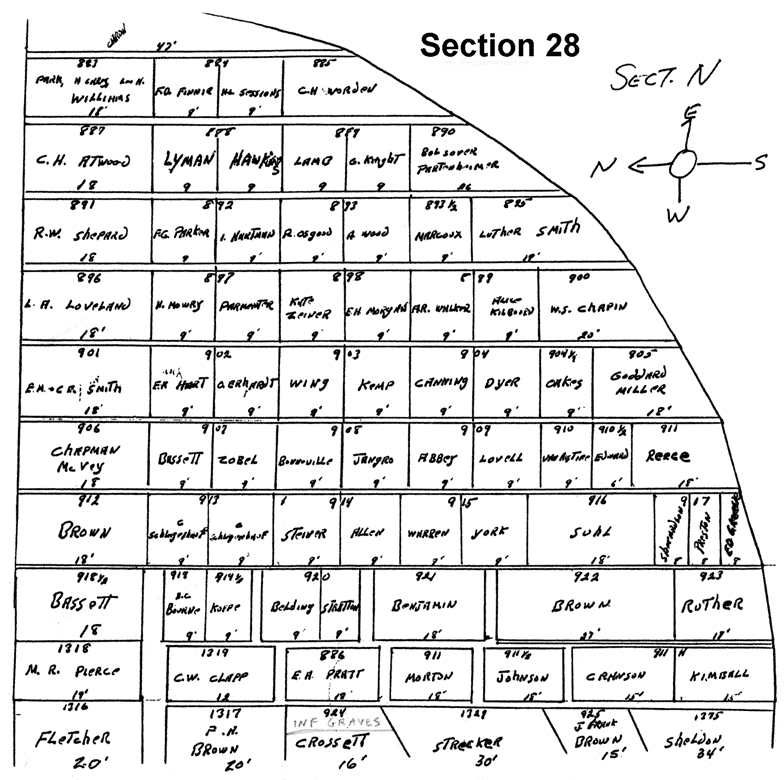 Section 28
SECT. N
E
N S
W
47'
883 884 885
PARK, H
WILLIAMS F.D. FINNIE H.L. SESSIONS C.H. WORDEN
18' 9' 9'
887 888 889 890
C.H. ATWOOD LYMAN HAWKINS LAMB G. KNIGHT BOLSOVER
PARTENHEIMER
18 9 9 9 9 26
891 892 893 893 1/2 895
R.W. SHEPARD F.G. PARKER I. HARTMAN R. OSGOOD A WOOD MARCOUX LUTHER SMITH
18 9 9' 9' 9' 9' 18'
896 897 898 899 900
L. A. LOVELAND H. MOWRY PARMENTER KATE
ZEINER E.H. MORGAN A.R. WALKER ALICE W.S. CHAPIN
18' 9' 9' 9' 9' 9' 9' 20'
901 902 903 904 904 1/2 905
E.H. & C.R. SMITH E.R. HART O. GERHARDT WING KEMP CANNING DYER OAKES GODDARD
MILLER
18' 9' 9' 9' 9' 9' 9' 9' 18'
906 907 908 909 910 910 1/2 911
CHAPMAN
MCVEY BASSETT ZOBEL BONNOVILLE JANGRO ABBEY LOVELL EDWARD REECE
18 9' 9' 9' 9' 9' 9' 9' 6' 18'
912 913 914 915 916 917
BROWN STEINER ALLEN WARREN YORK SUHL PRESTON
18' 9' 9' 9' 9' 9' 9' 18' 9 9 9
918 1/2 919 919 1/2 920 921 922 923
BASSETT BOURNE KOPPE BELDING STRATTON BENJAMIN BROWN RUTHER
18 9' 9' 9' 9' 18' 27' 18'
1318 1319 886 911 911 1/2 911 H
M. R. PIERCE C.W. CLAPP E.A. PRATT MORTON JOHNSON CRANSON KIMBALL
18' 12 18' 18' 18' 15' 15'
1316 1317 924 1321 925 1375
INF GRAVES
FLETCHER P.H.
BROWN CROSSETT STRECKER J. FRANK
BROWN SHELDON
20' 20' 16' 30' 15' 34'